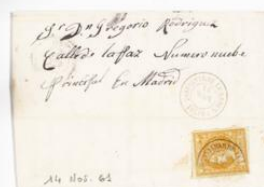 Sr. Dn Gregorio Rodriguez
Calle de la Paz Numero nuebe
Principal En Madrid
14 Nov. 61